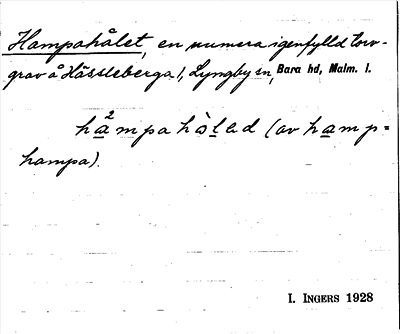 Hampahålet, en numera igenfylld torv-
grav å Hässleberga 1, Lyngby sn, Bara hd, Malm. l.
hampahålad (av hamp=
hampa).
I. INGERS 1928